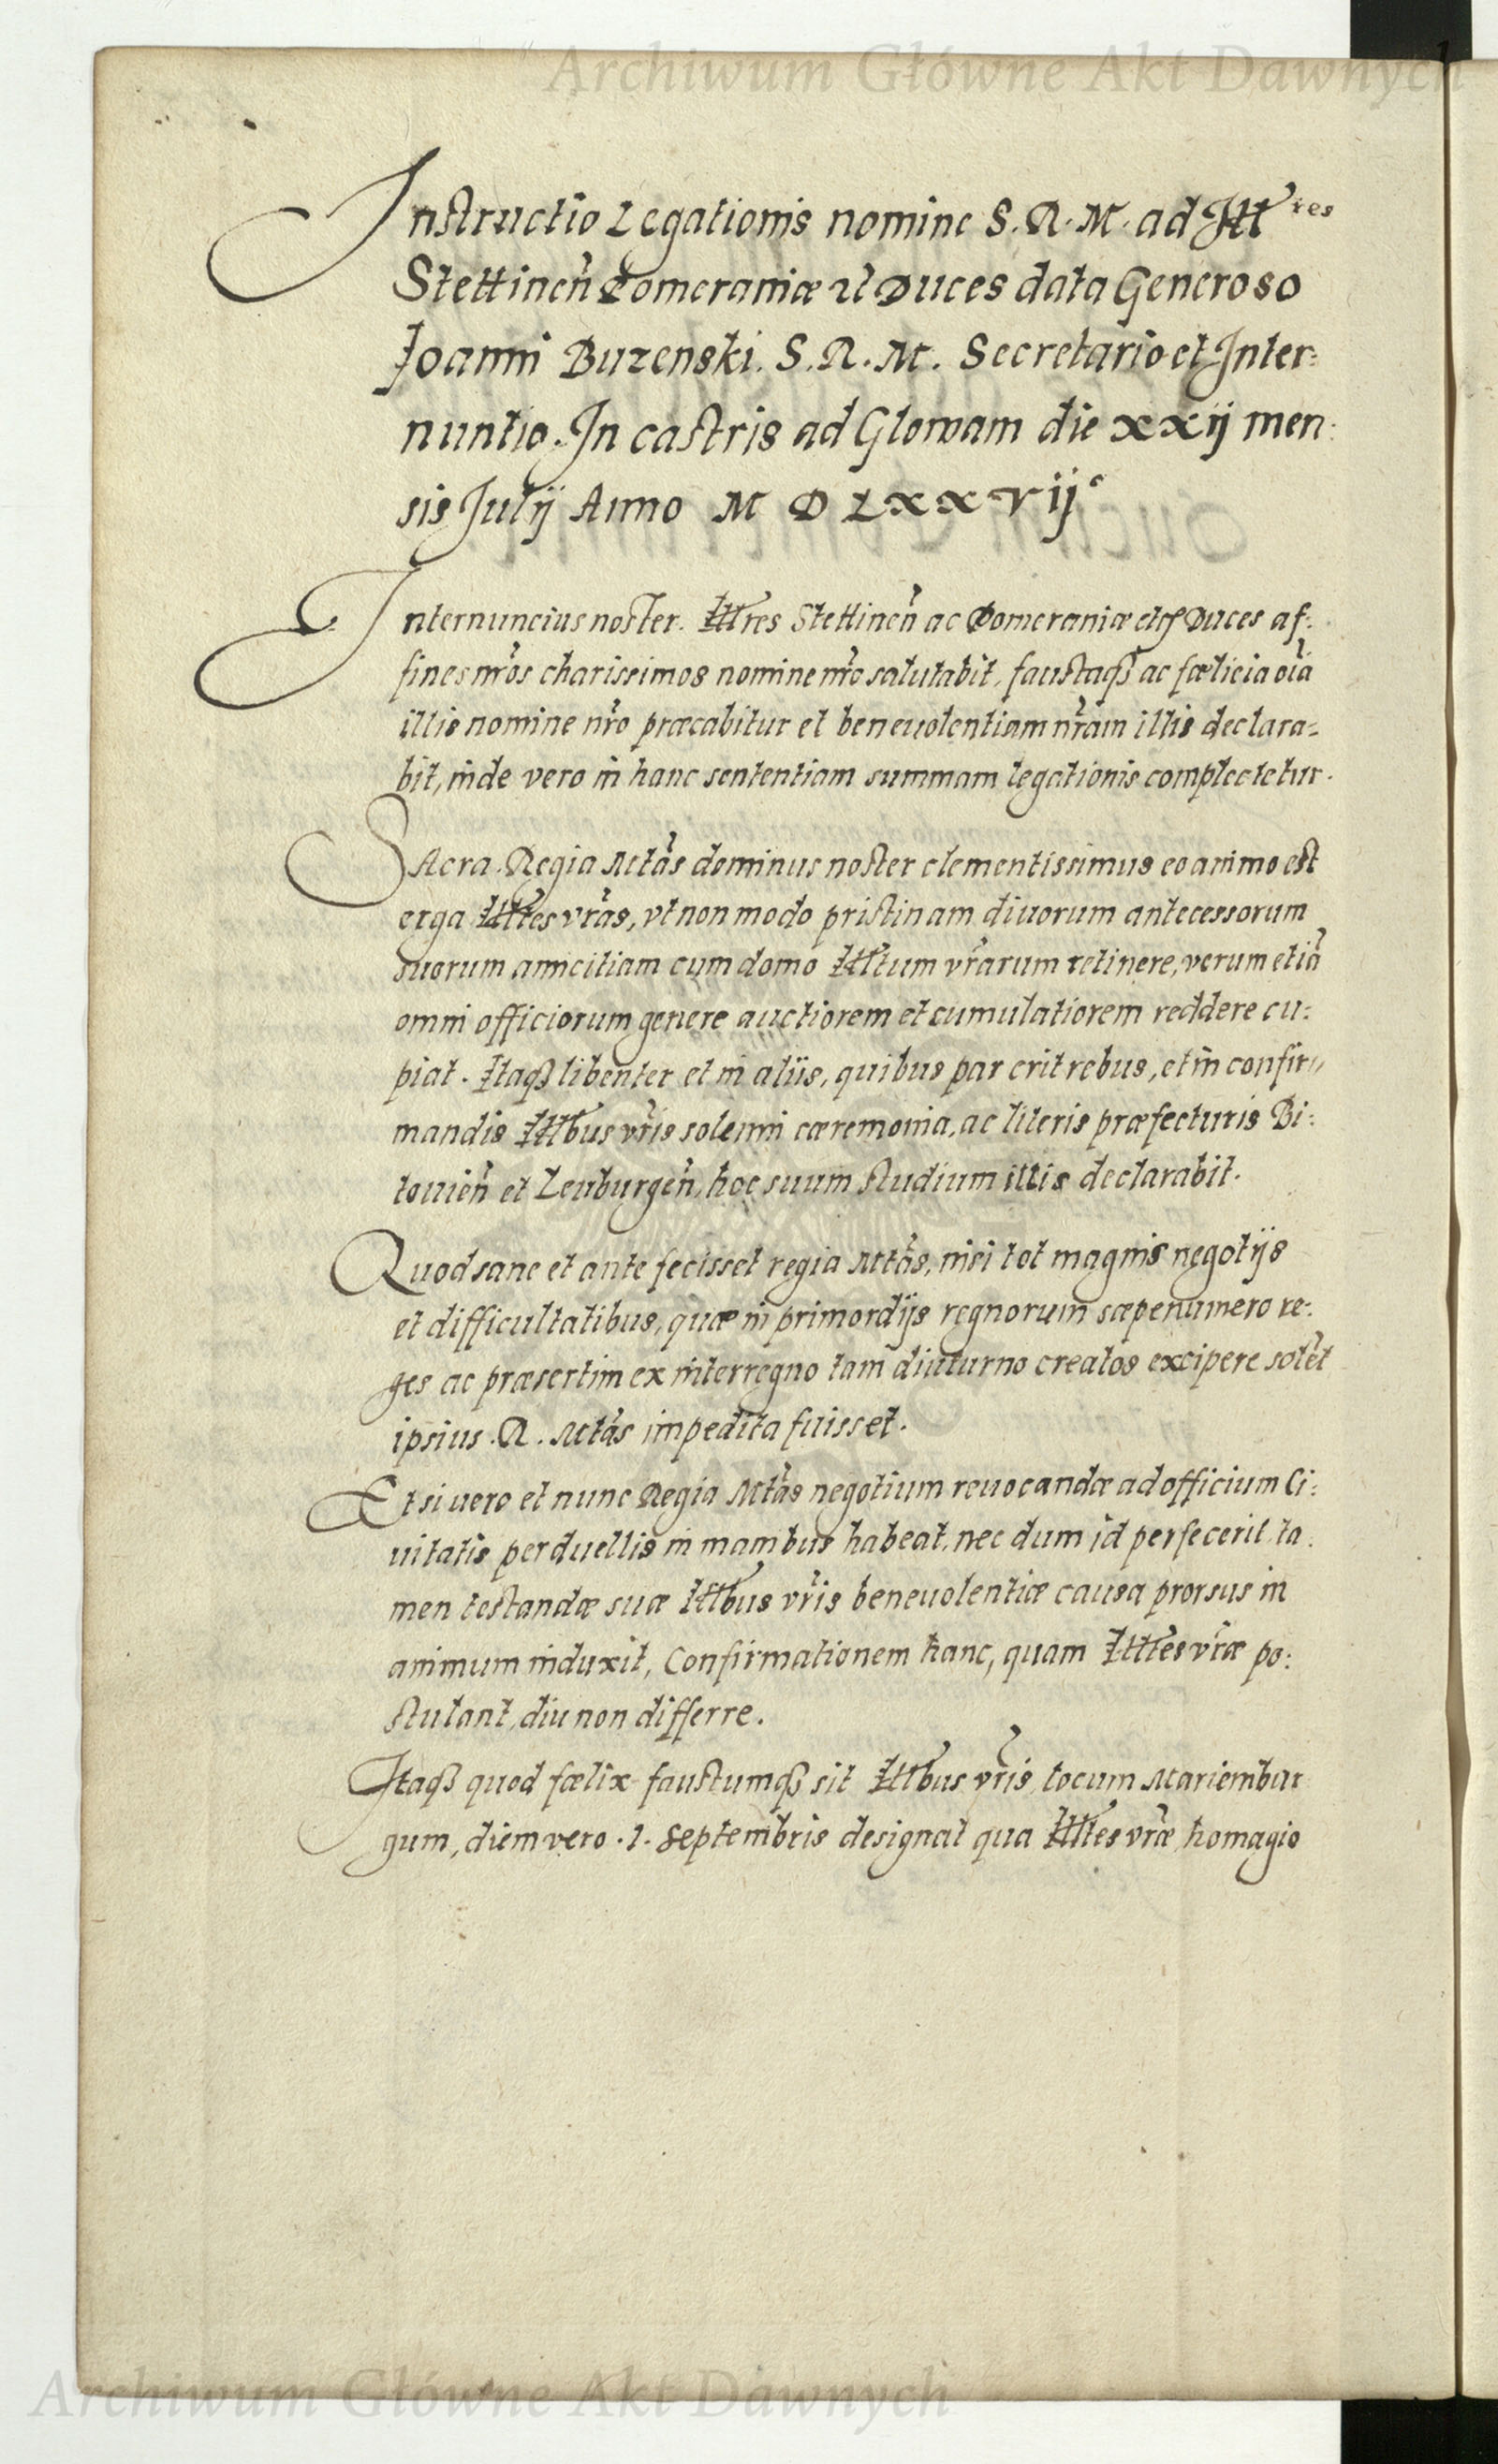 Archiwum Główne Akt Dawnych
Instructio Legationis nomine S. R. M. ad Ill^res
Stettinen̄ Pomeraniæ Duces data Generoso
Joanni Buzenski. S. R. M. Secretario et Inter:
nuntio. In castris ad Glowam die xxij men:
sis Julij Anno M D Lxxvij°
Internuncius noster. Illres Stettinen̄ ac Pomeraniæ etc̨ Duces af:
fines nr̄os charissimos nomine nr̄o salutabit, faustaqꝫ ac fœlicia oīa
illis nomine nr̄o præcabitur et beneuolentiam nr̄am illis declara=
bit, inde vero in hanc sententiam summam legationis complectetur.
SAcra Regia Mtās dominus noster clementissimus eo animo est
erga Illtes vrās, vt non modo pristinam diuorum antecessorum
suorum amicitiam cum domo Illtum vrārum retinere, verum etiā
omni officiorum genere auctiorem et cumulatiorem reddere cu:
piat. Itaqꝫ libenter et in alijs, quibus par erit rebus, et in confir„
mandis Illbus vrīs solenni cæremonia, ac literis præfecturis Bi:
touien̄ et Leuburgen̄, hoc suum studium illis declarabit.
Quod sane et ante fecisset regia Mtās, nisi tot magnis negotijs
et difficultatibus, quæ in primordijs regnorum sæpenumero re:
ges ac præsertim ex interregno tam diuturno creatos excipere solēt
ipsius. R. Mtās impedita fuisset.
Etsi uero et nunc Regia Mtās negotium reuocandæ ad officium Ci:
uitatis perduellis in manibus habeat, nec dum id perfecerit, ta:
men testandæ suæ Illbus vrīs beneuolentiæ causa prorsus in
animum induxit, Confirmationem hanc, quam Illtes vrāe po:
stulant, diu non differre.
Itaqꝫ quod fœlix faustumqꝫ sit Illbus vrīs, locum Mariembur
gum, diem vero .1. Septembris designat qua Illtes vrāe homagio
Archiwum Główne Akt Dawnych